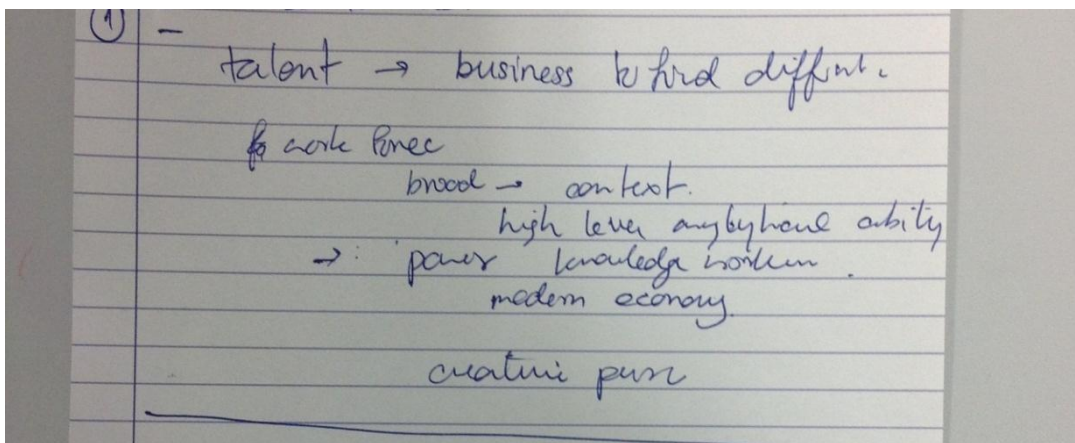 ① –
talent → business to find diffrent.
work force
broad → context.
high level ability
→: power knowledge workers.
modern economy.
creative